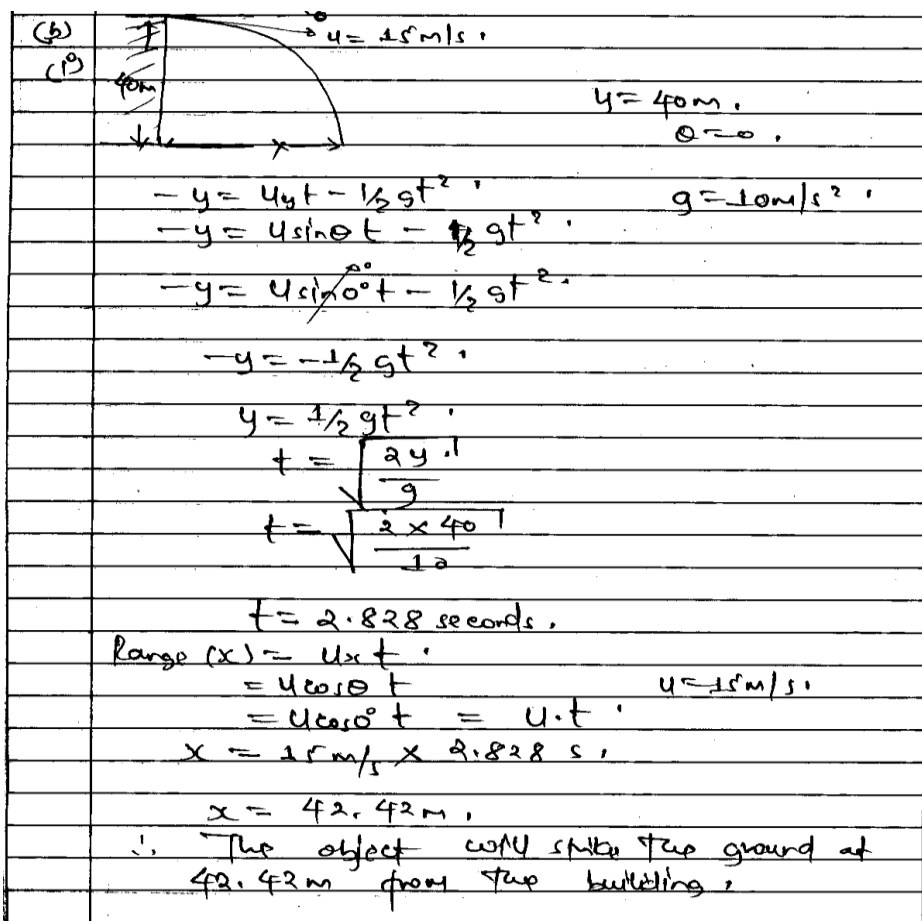 (b)
u = 15m/s.
(i)
40m
y = 40m.
θ = 0.
x
- y = uyt - 1/2 gt².
g = 10m/s².
- y = usinθ t - 1/2 gt².
- y = usin0° t - 1/2 gt².
- y = - 1/2 gt².
y = 1/2 gt².
t = √(2y/g)
t = √(2 × 40/10)
t = 2.828 seconds.
Range (x) = ux t.
= ucosθ t
u = 15m/s.
= ucos0° t = u.t.
x = 15 m/s × 2.828 s.
x = 42.42m.
∴ The object will strike the ground at
42.42m from the building.